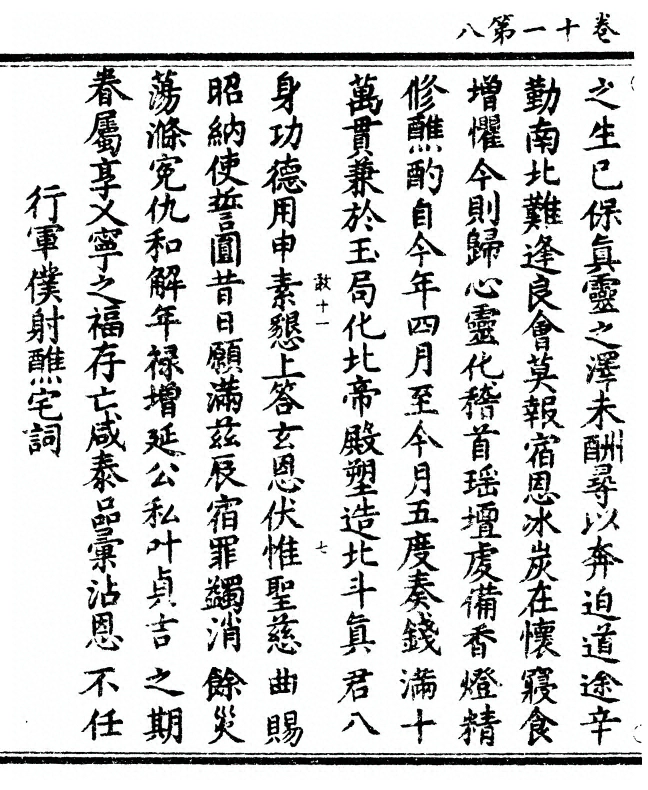 卷十一第八
之生已保眞靈之澤未酬尋以奔迫道途辛
勤南北難逢良會莫報宿恩冰炭在懷寢食
增懼今則歸心靈化稽首瑶壇虔備香燈精
修醮酌自今年四月至今月五度奏錢滿十
萬貫兼於玉局化北帝殿塑造北斗眞君八
敢十一
七
身功德用申素懇上答玄恩伏惟聖慈曲賜
昭納使誓圓昔日願滿兹辰宿罪蠲消餘災
蕩滌寃仇和解年禄增延公私叶貞吉之期
眷屬享乂寧之福存亡咸泰品彙沾恩不任
行軍僕射醮宅詞